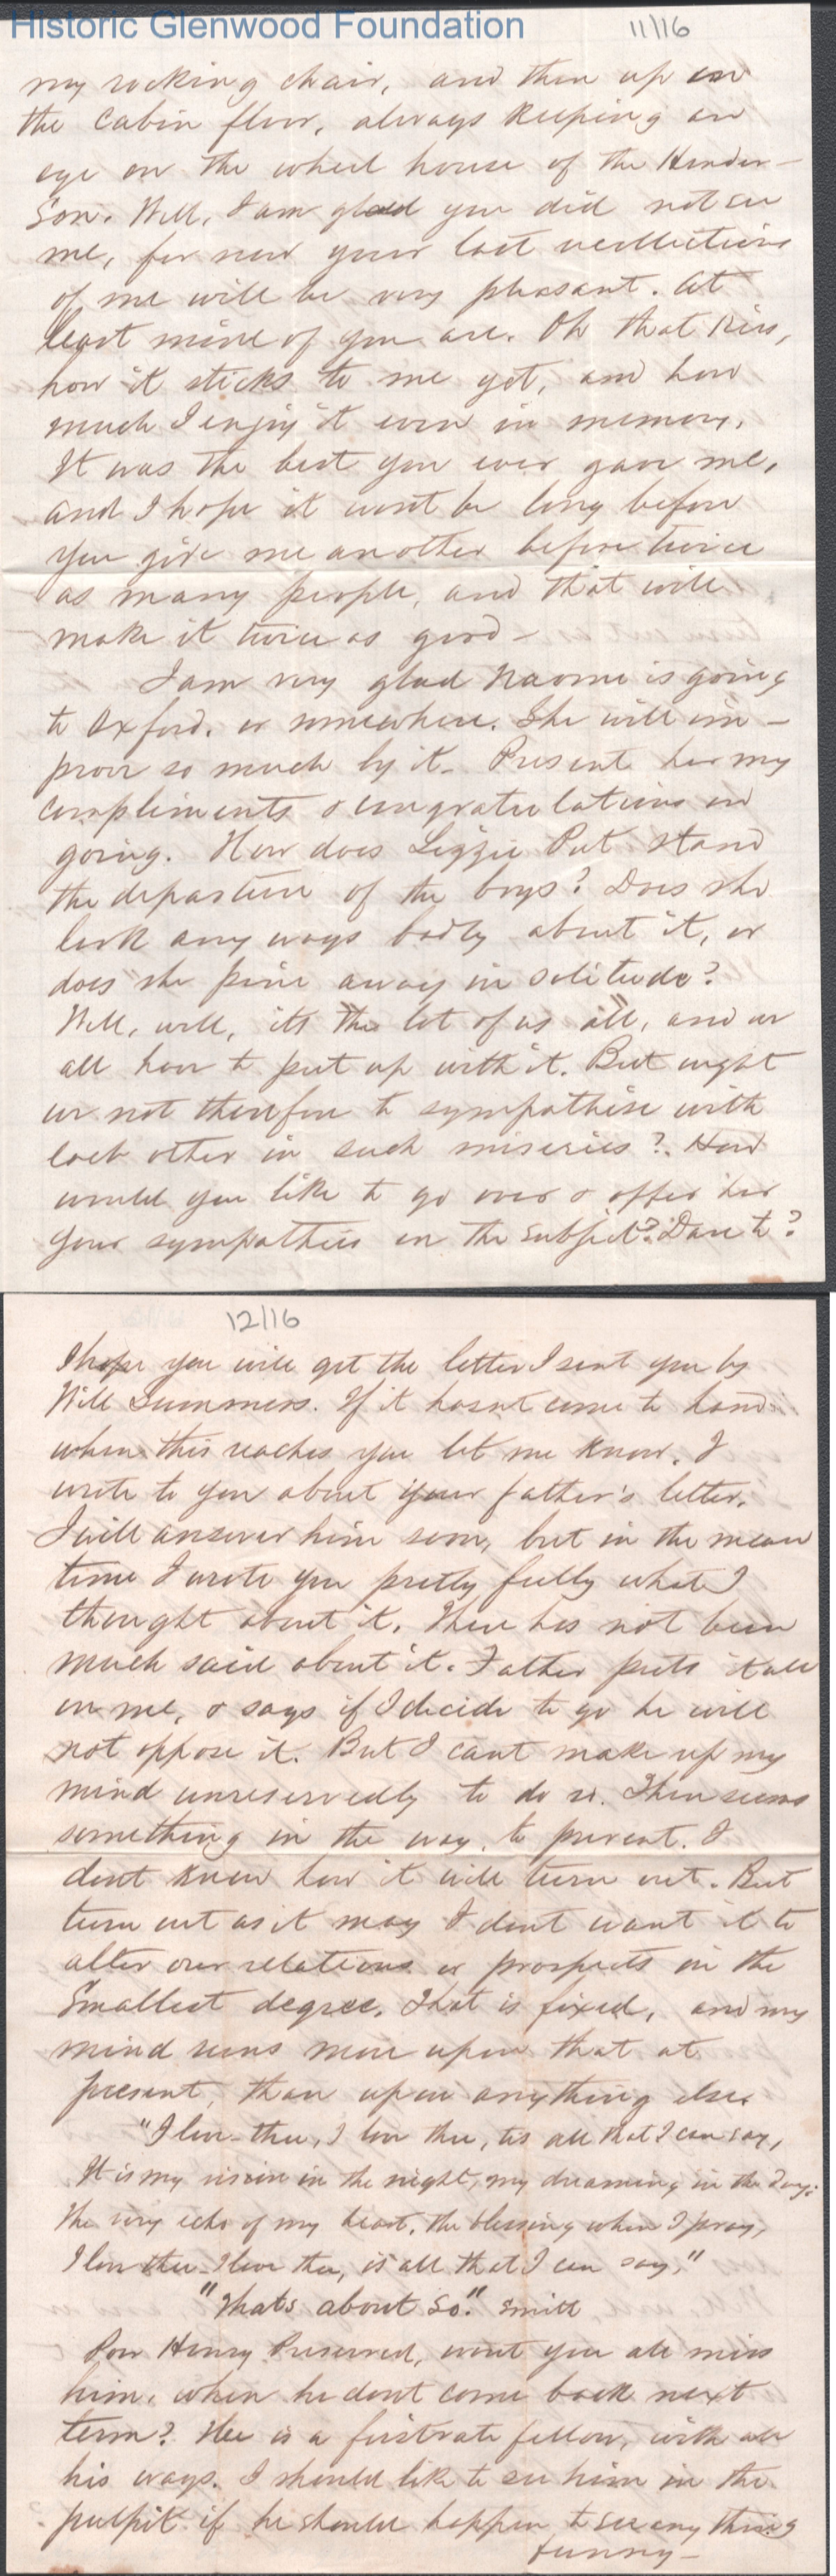 Historic Glenwood Foundation
11/16
my rocking chair, and then up on
the cabin floor, always keeping an
eye on the wheel house of the Hender-
son. Well, I am glad you did not see
me, for now your last recollections
of me will be very pleasant. At
least mine of you are. Oh that kiss,
how it sticks to me yet, and how
much I enjoy it even in memory.
It was the best you ever gave me,
and I hope it wont be long before
you give me another before twice
as many people, and that will
make it twice as good-
I am very glad Naomi is going
to Oxford, or somewhere. She will im-
prove so much by it. Present her my
compliments & congratulations on
going. How does Lizzie Put stand
the departure of the boys? Does she
look any ways badly about it, or
does she pine away in solitude?
Well, well, its the lot of us all, and we
all have to put up with it. But ought
we not therefore to sympathise with
each other in such miseries? How
would you like to go over & offer her
your sympathies on the subject? Dare to?
12/16
I hope you will get the letter I sent you by
Will Summers. If it hasnt come to hand
when this reaches you let me know. I
wrote to you about your father's letter.
I will answer him soon, but in the mean
time I wrote you pretty fully what I
thought about it. There has not been
much said about it. Father puts it all
on me, & says if I decide to go he will
not oppose it. But I cant make up my
mind unreservedly to do so. There seems
something in the way, to prevent. I
dont know how it will turn out. But
turn out as it may I dont want it to
alter our relations or prospects in the
smallest degree. That is fixed, and my
mind runs more upon that at
present, than upon anything else.
"I love thee, I love thee, tis all that I can say,
It is my vision in the night, my dreaming in the day;
The very echo of my heart, the blessing when I pray,
I love thee- I love thee, is all that I can say."
"Thats about so." Smith
Poor Henry Preserved, wont you all miss
him, when he dont come back next
term? He is a firstrate fellow, with all
his ways. I should like to see him in the
pulpit if he should happen to see any thing
funny-